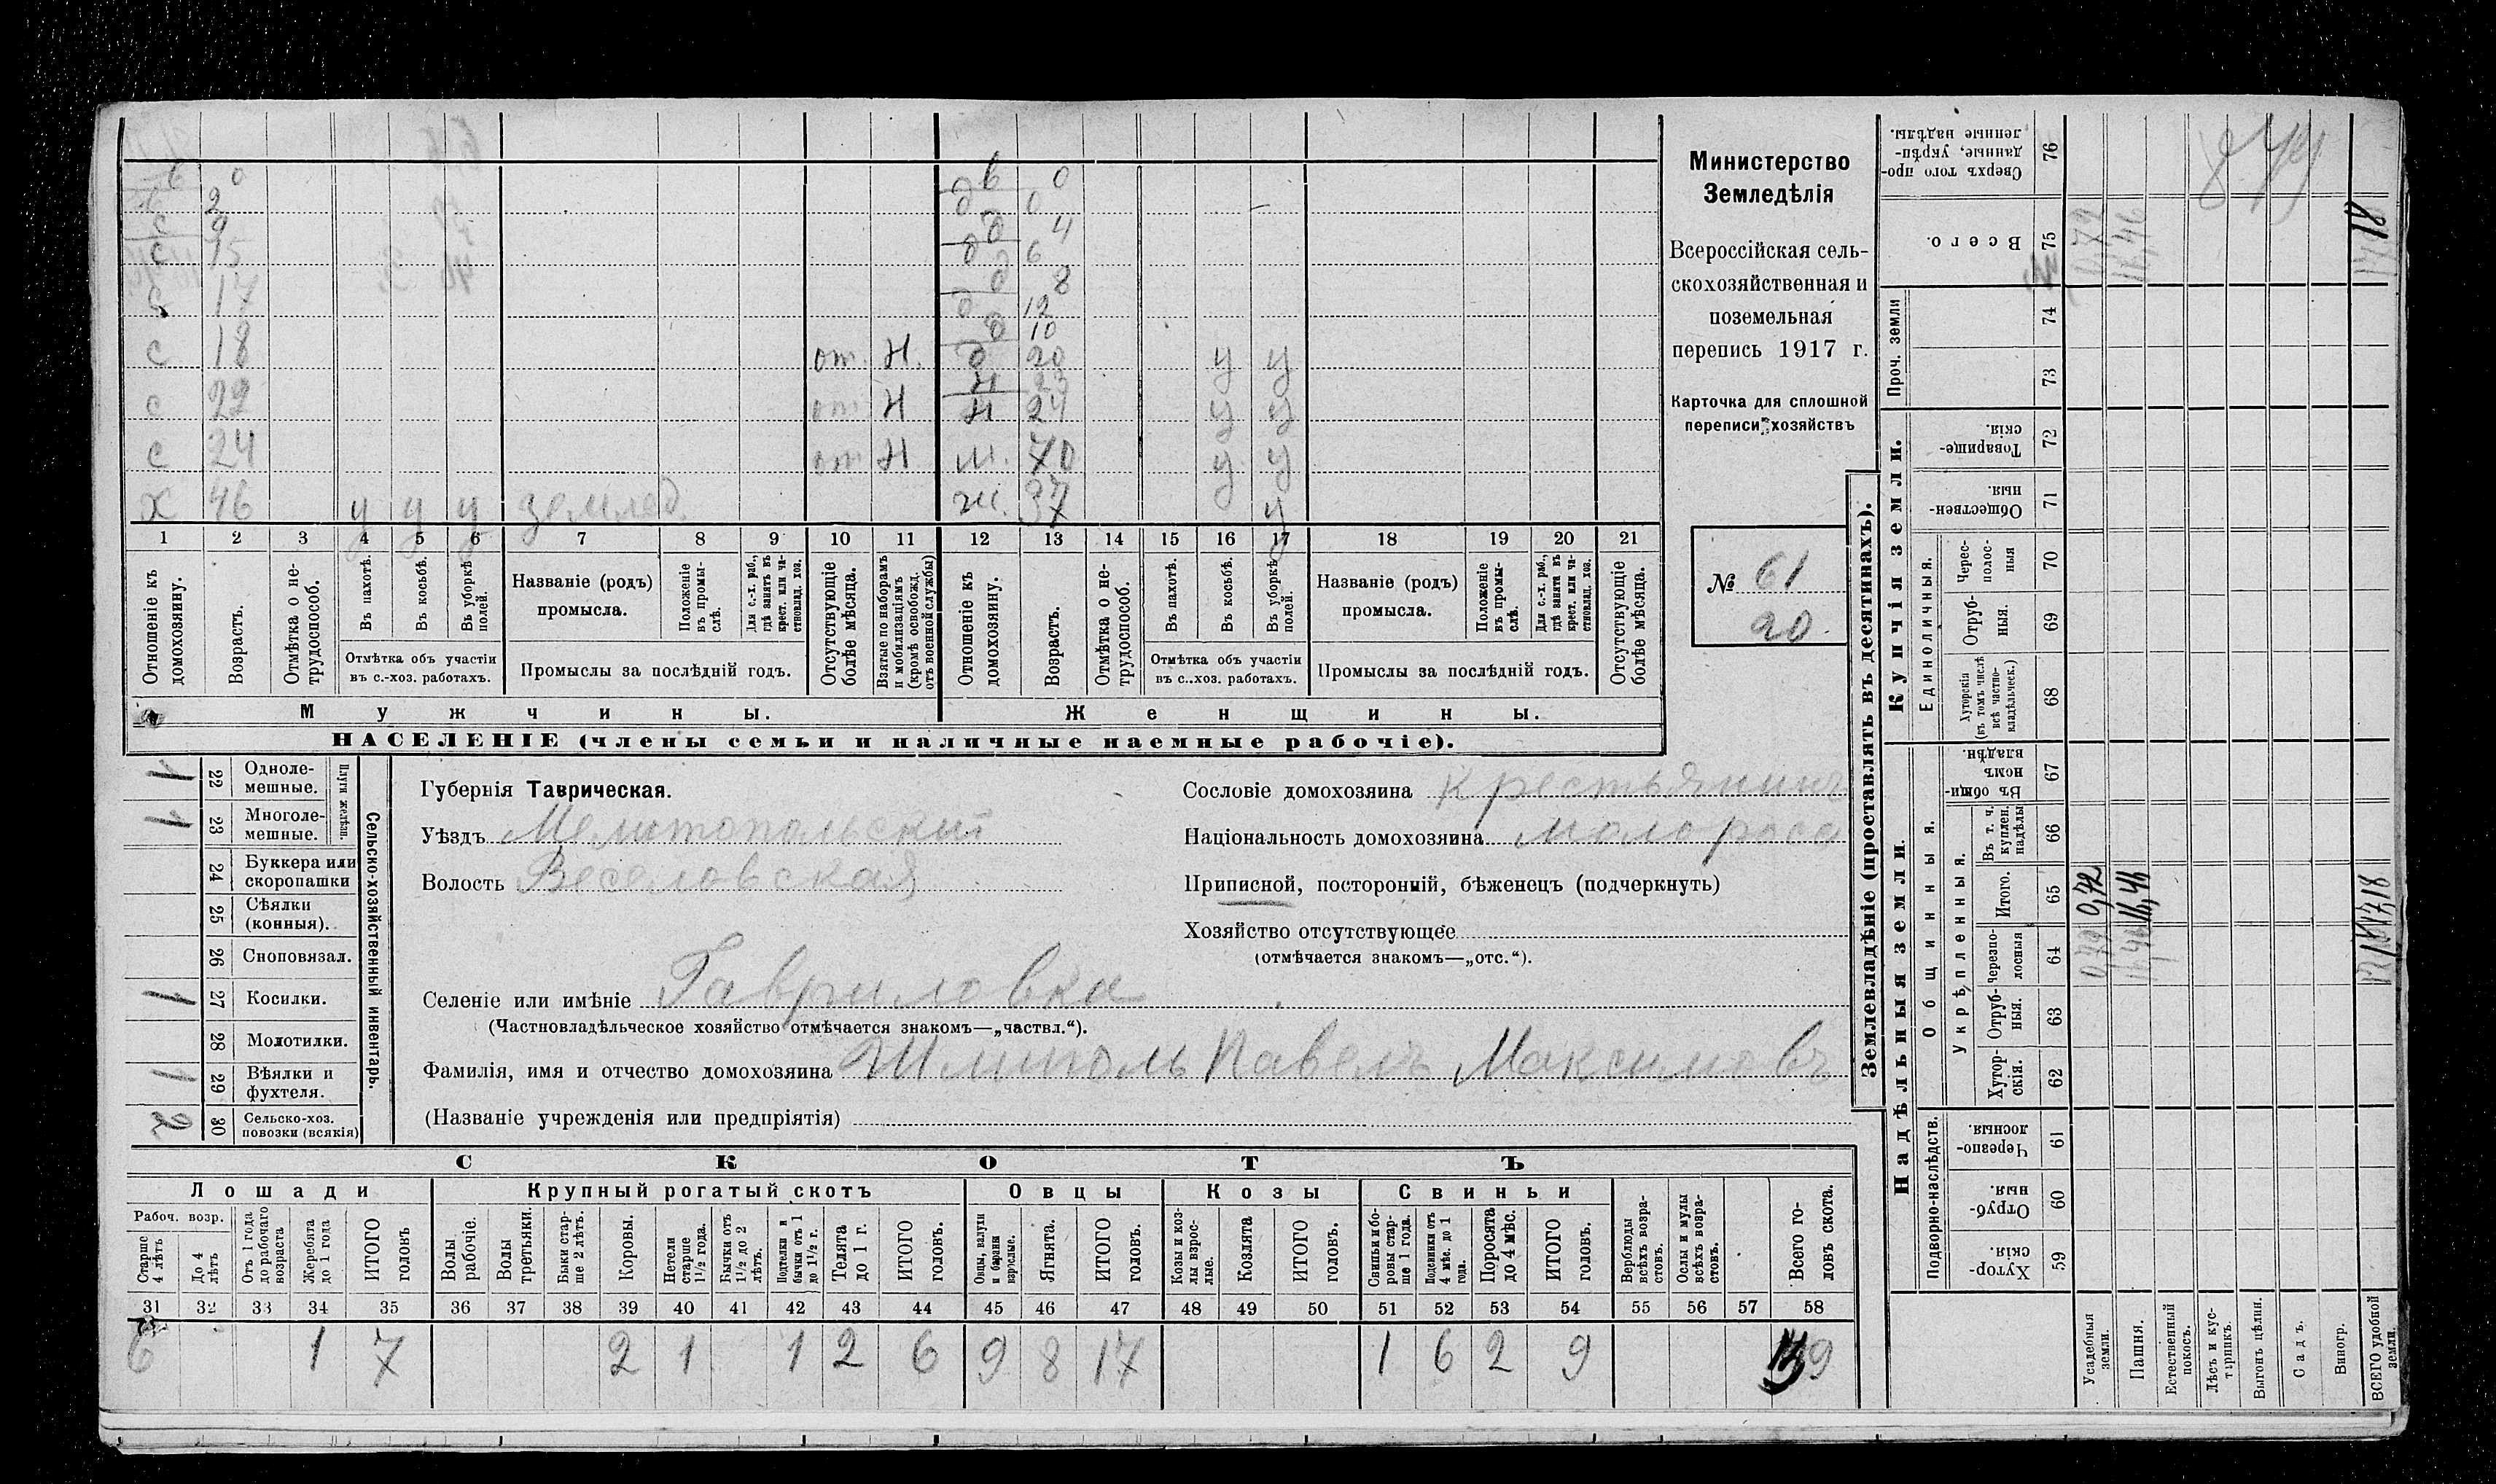 Министерство
Земледѣлія
Всероссійская сель-
скохозяйственная и
поземельная
перепись 1917 г.
Карточка для сплошной
переписи хозяйствъ
№ 61
20
в 0 в 0
2 д 0
с 9 д 4
с 15 д 6
д 8
с 17 д 12
д 10
с 18 от. Н. д 20 у у
Н 23
с 22 от Н Н 24 у у
с 24 от Н м. 70 у у
х 46 у у у землед. ж. 37 у
1 2 3 4 5 6 7 8 9 10 11 12 13 14 15 16 17 18 19 20 21
Отношеніе къ домохозяину.
Возрастъ.
Отмѣтка о не-трудоспособ.
Въ пахотѣ.
Въ косьбѣ.
Въ уборкѣ полей.
Отмѣтка объ участіи
въ с.-хоз. работахъ.
Названіе (родъ)
промысла.
Положеніе въ промы-слѣ.
Для с.-х. раб., гдѣ занятъ въ крест. или ча-стновлад. хоз.
Промыслы за послѣдній годъ.
Отсутствующіе болѣе мѣсяца.
Взятые по наборамъ и мобилизаціямъ (кромѣ освобожд. отъ военной службы)
Отношеніе къ домохозяину.
Возрастъ.
Отмѣтка о не-трудоспособ.
Въ пахотѣ.
Въ косьбѣ.
Въ уборкѣ полей.
Отмѣтка объ участіи
въ с..хоз. работахъ.
Названіе (родъ)
промысла.
Положеніе въ промы-слѣ.
Для с.-х. раб., гдѣ занята въ крест. или ча-стновлад. хоз.
Промыслы за послѣдній годъ.
Отсутствующіе болѣе мѣсяца.
Мужчины.
Женщины.
НАСЕЛЕНІЕ (члены семьи и наличные наемные рабочіе).
Сельско-хозяйственный инвентарь.
Плуги желѣзн.
1 22 Одноле-мешные.
1 23 Многоле-мешные.
24 Буккера или скоропашки
25 Сѣялки (конныя).
26 Сноповязал.
1 27 Косилки.
28 Молотилки.
1 29 Вѣялки и фухтеля.
2 30 Сельско-хоз. повозки (всякія)
Губернія Таврическая.
Уѣздъ Мелитопольскій
Волость Веселовская
Сословіе домохозяина крестьянинъ
Національность домохозяина малоросс
Приписной, посторонній, бѣженецъ (подчеркнуть)
Хозяйство отсутствующее
(отмѣчается знакомъ—„отс.“).
Селеніе или имѣніе Гавриловка
(Частновладѣльческое хозяйство отмѣчается знакомъ—„частвл.“).
Фамилія, имя и отчество домохозяина Павелъ Максимовъ
(Названіе учрежденія или предпріятія)
СКОТЪ
Лошади
Крупный рогатый скотъ
Овцы
Козы
Свиньи
Рабоч. возр.
Старше 4 лѣтъ
До 4 лѣтъ
Отъ 1 года до рабочаго возраста
Жеребята до 1 года
ИТОГО головъ
Волы рабочіе.
Волы третьяки.
Быки стар-ше 2 лѣтъ.
Коровы.
Нетели старше 1½ года.
Бычки отъ 1½ до 2 лѣтъ.
Подтелки и бычки отъ 1 до 1½ г.
Телята до 1 г.
ИТОГО головъ.
Овцы, валухи и бараны взрослые.
Ягнята.
ИТОГО головъ.
Козы и коз-лы взрос-лые.
Козлята
ИТОГО головъ.
Свиньи и бо-ровы стар-ше 1 года.
Подсвинки отъ 4 мѣс. до 1 года.
Поросята до 4 мѣс.
ИТОГО головъ.
Верблюды всѣхъ возра-стовъ.
Ослы и мулы всѣхъ возра-стовъ.
Всего го-ловъ скота.
31 32 33 34 35 36 37 38 39 40 41 42 43 44 45 46 47 48 49 50 51 52 53 54 55 56 57 58
6 1 7 2 1 1 2 6 9 8 17 1 6 2 9 39
Землевладѣніе (проставлять въ десятинахъ).
Купчія земли.
Надѣльныя земли.
Сверхъ того про-данные, укрѣп-ленные надѣлы. 76
Всего. 75
Проч. земли 74
73
Товарище-скія. 72
Обществен-ныя. 71
Единоличныя.
Черес-полос-ныя 70
Отруб-ныя. 69
Хуторскія (въ томъ числѣ всѣ частно-владѣльческ.) 68
Общинныя.
Въ общин-номъ владѣн. 67
Укрѣпленныя.
Въ т. ч. куплен. надѣлы 66
Итого. 65
Черезпо-лосныя 64
Отруб-ныя. 63
Хутор-скія. 62
Подворно-наслѣдств.
Черезпо-лосныя. 61
Отруб-ныя. 60
Хутор-скія. 59
Усадебныя земли.
0,72
Пашня.
16,46 16,46 16,46
Естественный покосъ.
Лѣсъ и кус-тарникъ.
Выгонъ цѣлин.
Садъ.
Виногр.
ВСЕГО удобной земли.
17,18